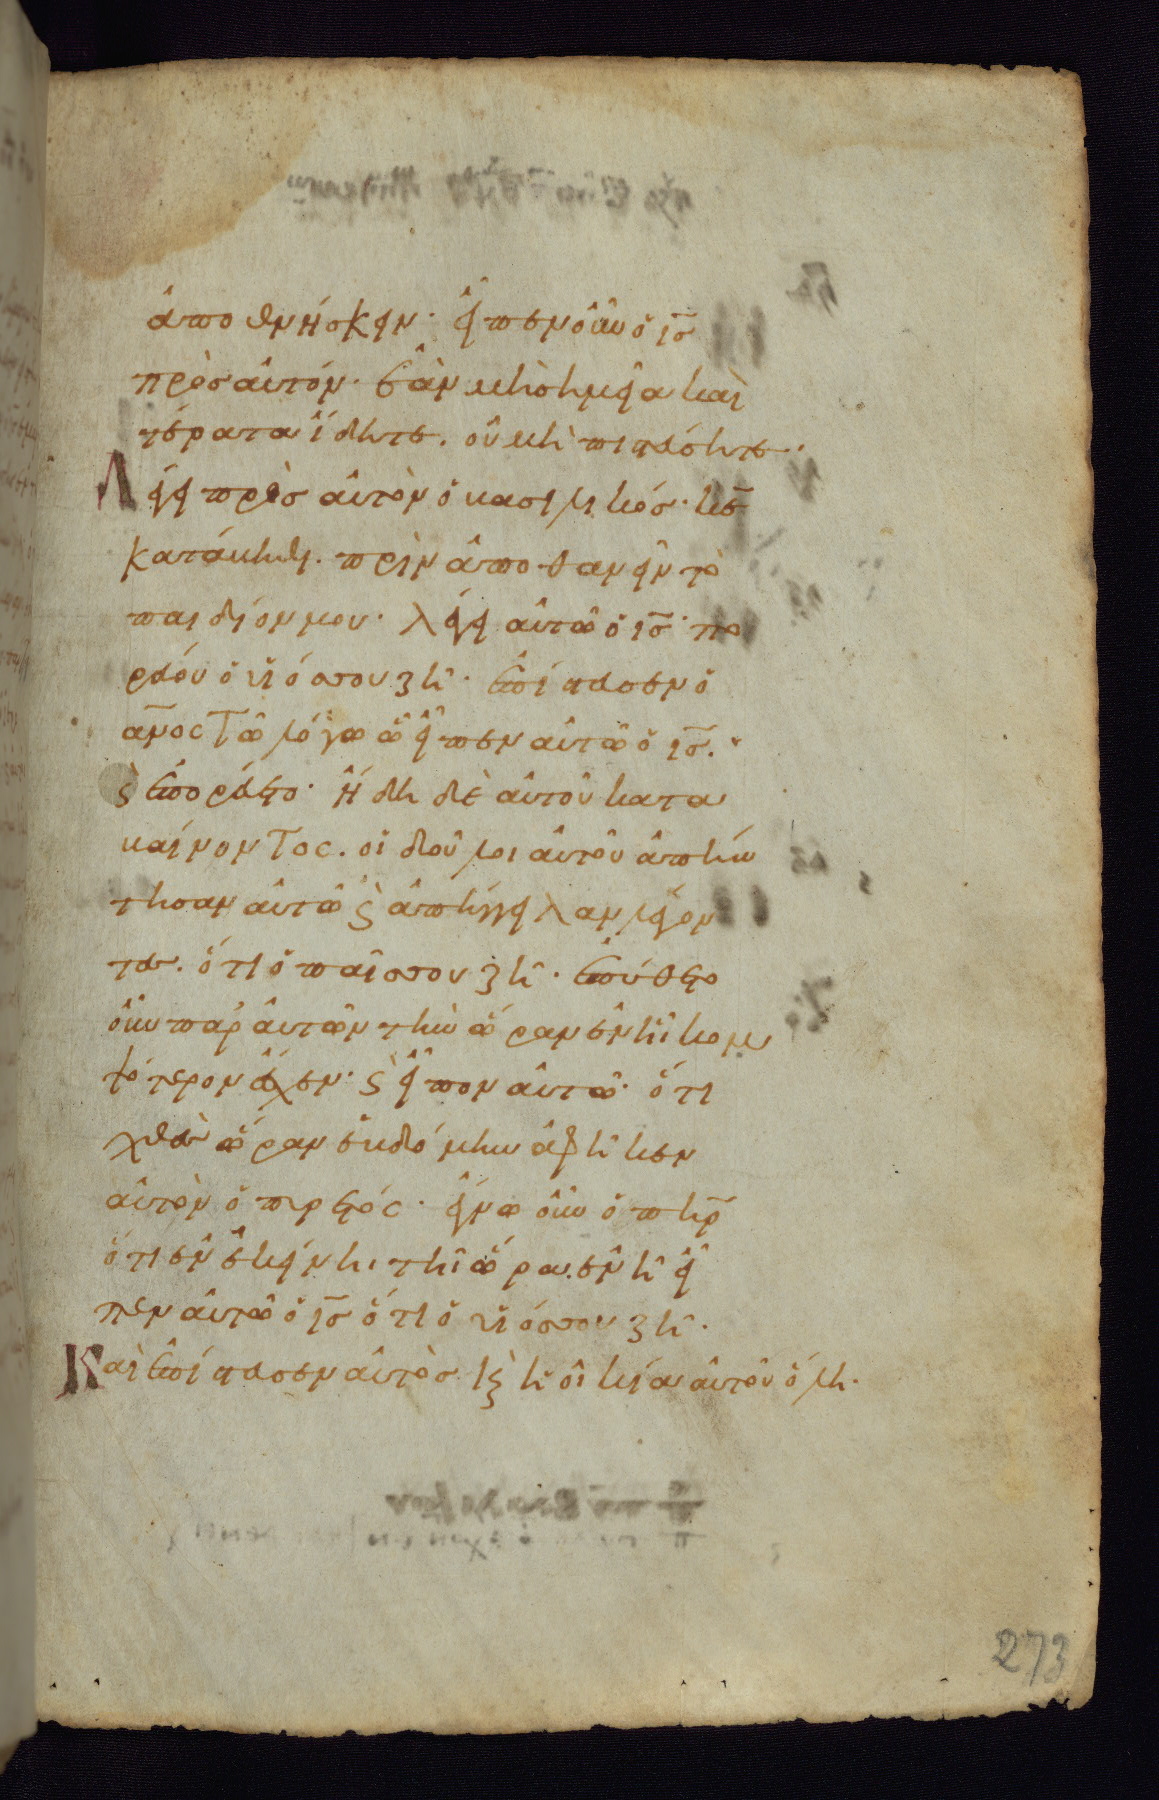 ἀποθνήσκειν· εἶπεν οὖν ὁ ι̅ς̅
πρὸς αὐτόν· ἐὰν μὴ σημεῖα καὶ
τέρατα ἴδητε. οὐ μὴ πιστεύσητε·
Λέγει πρὸς αὐτὸν ὁ βασιλικός· κ̅ε̅
κατάβηθι· πρὶν ἀποθανεῖν τὸ
παιδίον μου· λέγει αὐτῶ ὁ ι̅ς̅· πο
ρεύου ὁ υἱός σου ζῆ· ἐπίστευσεν ὁ
α̅ν̅ος τῶ λόγω ὧ εἶπεν αὐτῶ ὁ ι̅ς̅.
ϗ ἐπορεύετο· ἤδη δὲ αὐτοῦ κατα
βαίνοντος. οἱ δοῦλοι αὐτοῦ ἀπήν
τησαν αὐτῶ ϗ ἀπήγγειλαν λέγον
τες. ὅτι ὁ παῖς σου ζῆ· ἐπύθετο
οὖν παρ' αὐτῶν τὴν ὥραν ἐν ἧ κομ
ψότερον ἔσχεν· ϗ εἶπον αὐτῶ· ὅτι
χθὲς ὥραν ἑβδόμην ἀφῆκεν
αὐτὸν ὁ πυρετός· ἔγνω οὖν ὁ π̅η̅ρ̅
ὅτι ἐν ἐκείνηι τῆ ὥρα. ἐν ἧ εἶ
πεν αὐτῶ ὁ ι̅ς̅ ὅτι ὁ υἱός σου ζῆ·
Καὶ ἐπίστευσεν αὐτὸς κϗ ἡ οἰκία αὐτοῦ ὅλη·
273